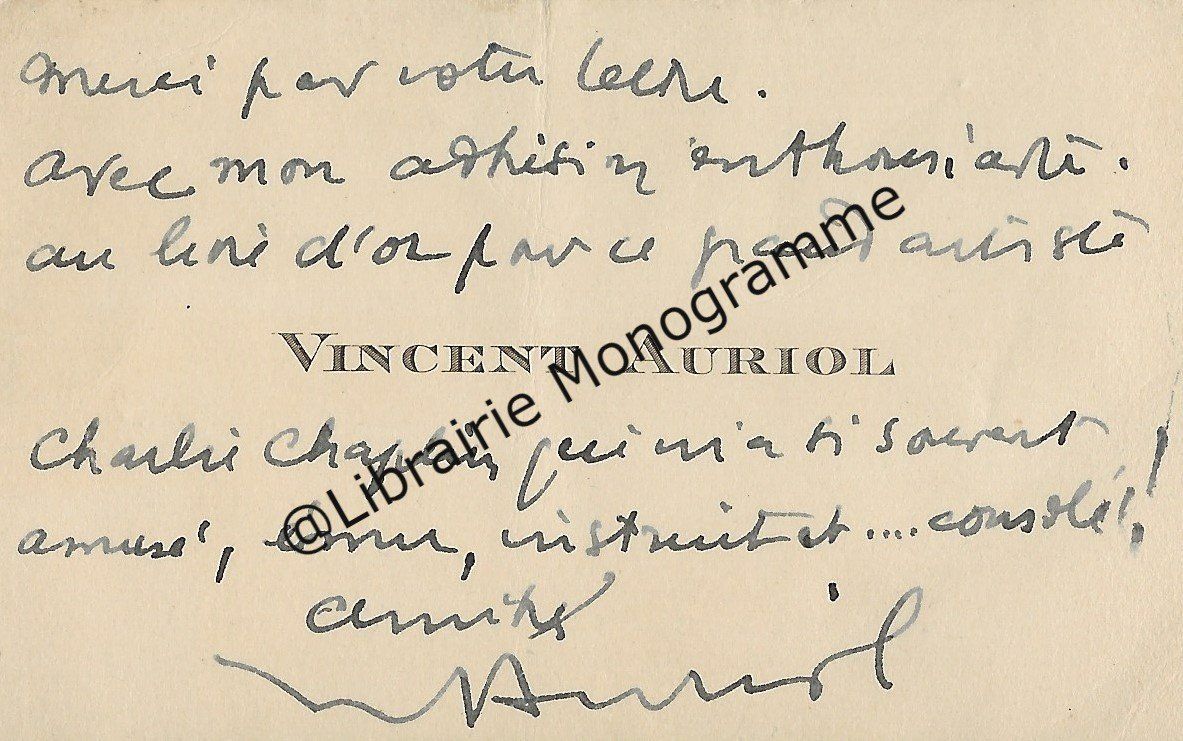 Merci pour votre lettre.
Avec mon adhésion enthousiaste.
au livre d'or pour ce grand artiste
VINCENT AURIOL
@Librairie Monogramme
Charlie Chaplin qui m'a si souvent
amusé, ému, instruit et .... consolé !
amitiés
V Auriol